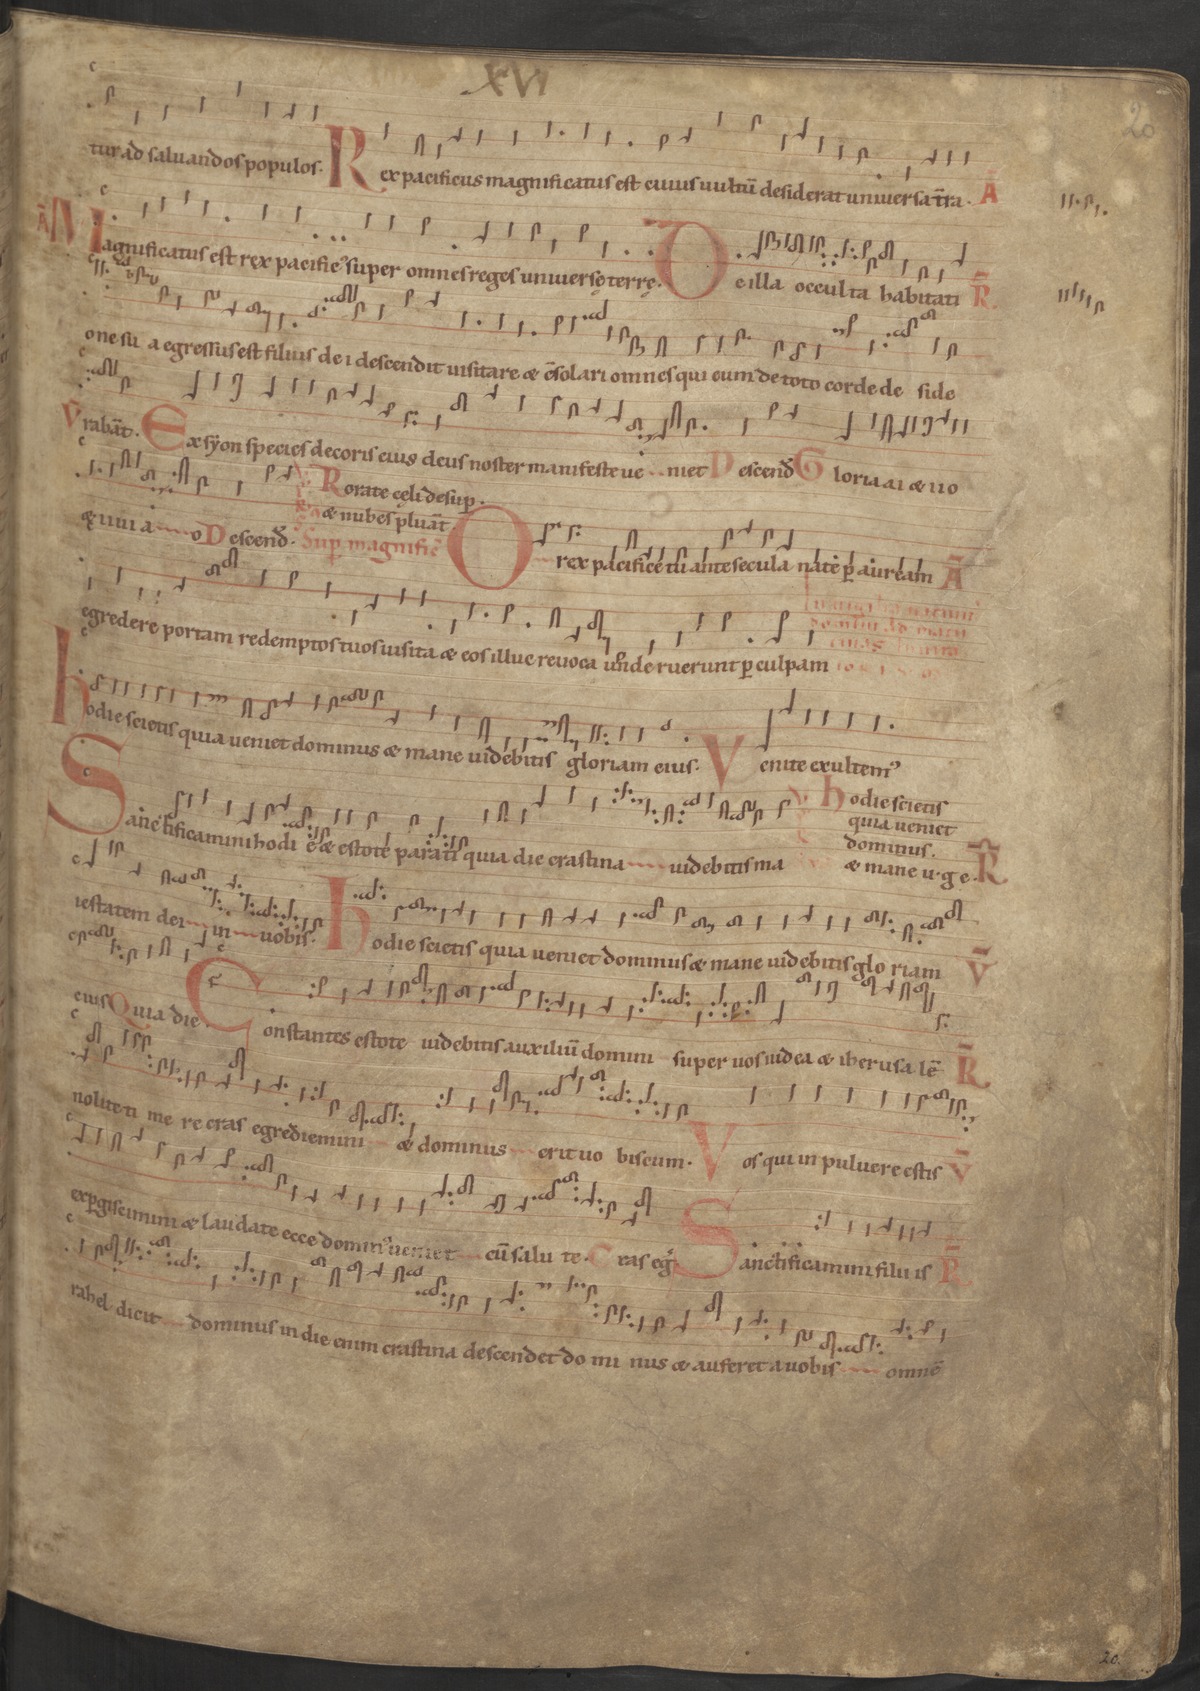 XVI
20
tur ad saluandos populos. Rex pacificus magnificatus est cuius uultū desiderat uniuersa t̄ra. Ā
Ā Magnificatus est rex pacificꝰ super omnes reges uniuersę terrę. De illa occulta habitati R̄
one su a egressus est filius dei descendit uisitare & c̄solari omnes qui eum de toto corde de side
V̄ rabāt. Ex syon species decoris eius deus noster manifeste ue niet Descend Gloria ai & no
& nui a o Descend. V Rorate cęli desup.
& nubes pluāt.
Sup magnific̄ O rex pacifice tu ante secula nate p̱ auream Ā
egredere portam redemptos tuos uisita & eos illuc reuoca unde ruerunt p̱ culpam
hodie scietis quia ueniet dominus & mane uidebitis gloriam eius. Venite exultemꝰ
V hodie scietis
quia ueniet
dominus.
& mane u. g e. R̄
Sanctificamini hodi e & estote parati quia die crastina uidebitis ma
iestatem dei in uobis. hodie scietis quia ueniet dominus & mane uidebitis glo riam V̄
eius Quia die. Constantes estote uidebitis auxiliū domini super uos iudea & iherusa lē R̄
nolite ti me re cras egrediemini & dominus erit uo biscum. Vos qui in puluere estis V̄
exp̱giscimini & laudate ecce dominꝰ ueniet cū salu te. Cras eg Sanctificamini filii is R̄
rahel dicit dominus in die enim crastina descendet do mi nus & auferet a uobis omnē
20.